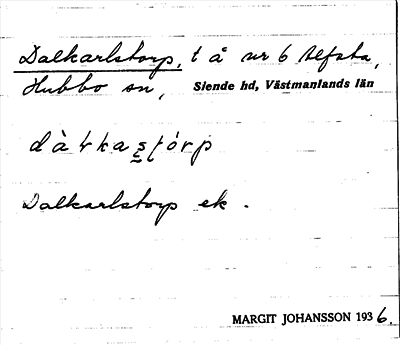 Dalkarlstorp, t å nr 6 Ulfsta,
Hubbo sn, Siende hd, Västmanlands län
Dalkarlstorp ek.
MARGIT JOHANSSON 1936.